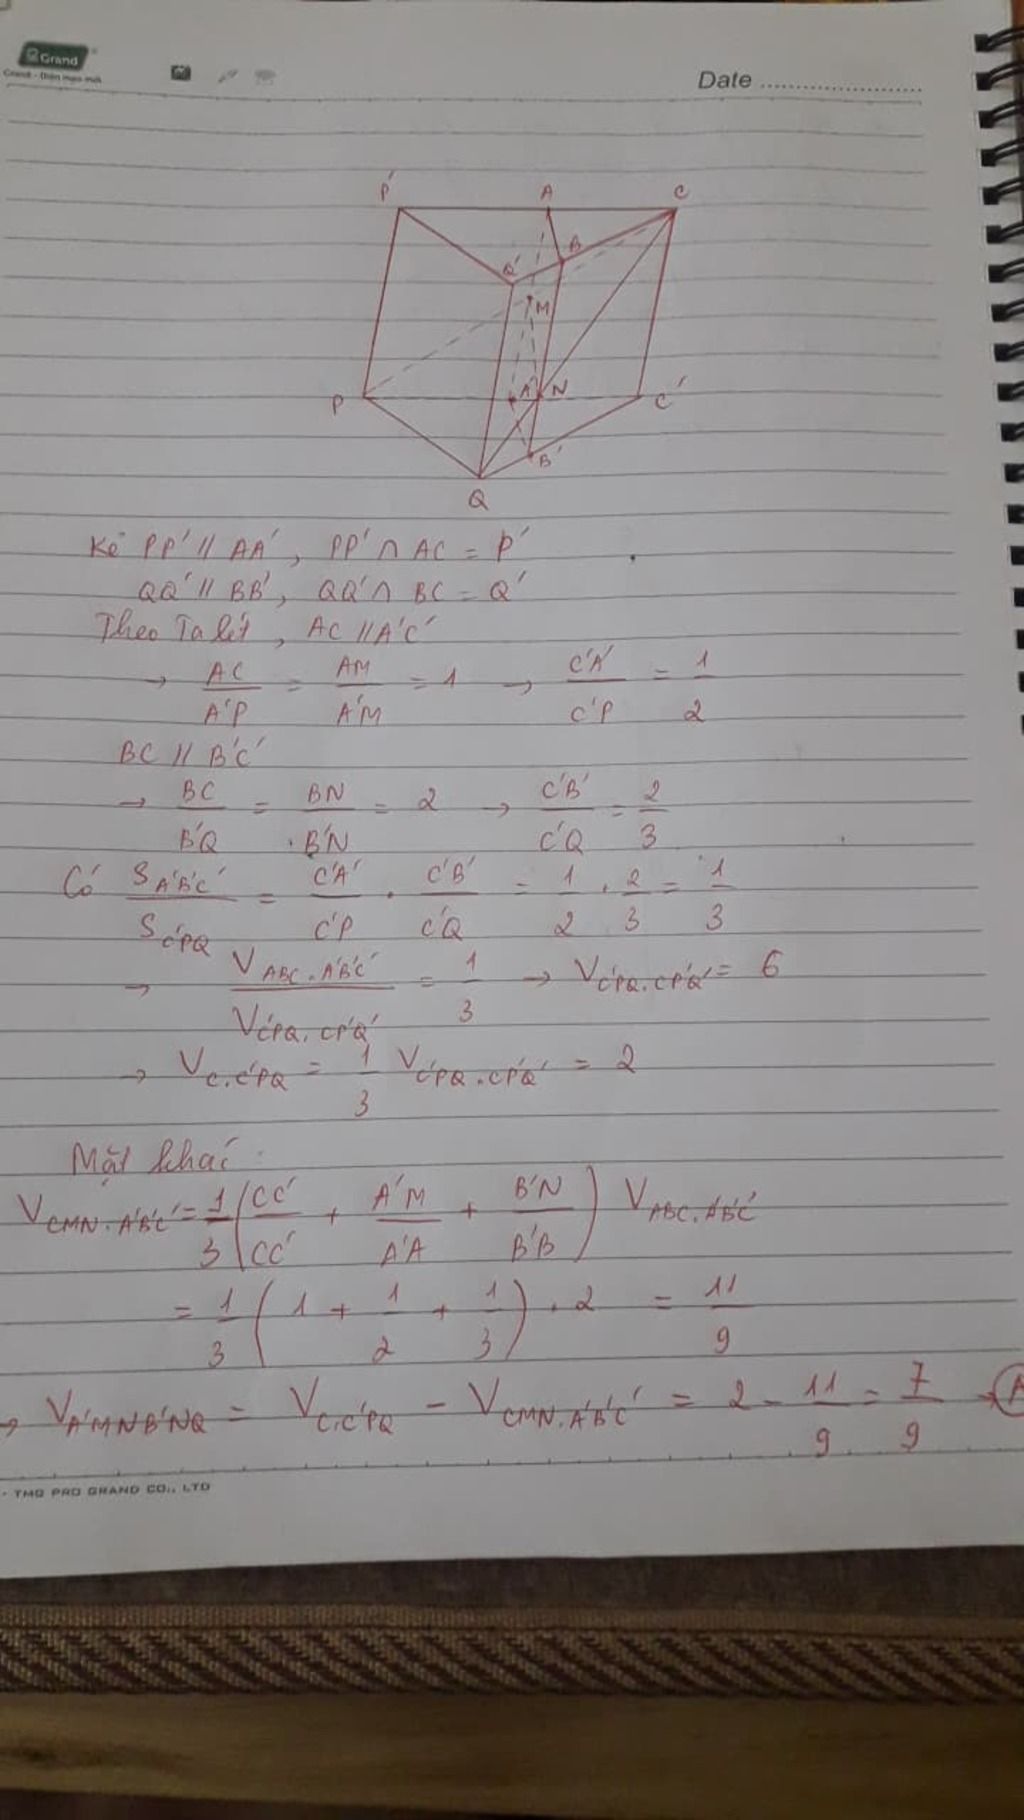 Grand
Date
P' A C
Q' B
M
P A' N C'
B'
Q
Kẻ PP' // AA', PP' ∩ AC = P'
QQ' // BB', QQ' ∩ BC = Q'
Theo Ta lét, AC // A'C'
→ AC/A'P = AM/A'M = 1 → C'A'/C'P = 1/2
BC // B'C'
→ BC/B'Q = BN/B'N = 2 → C'B'/C'Q = 2/3
Có S_A'B'C'/S_C'PQ = C'A'/C'P . C'B'/C'Q = 1/2 . 2/3 = 1/3
→ V_ABC.A'B'C'/V_C'PQ.CP'Q' = 1/3 → V_C'PQ.CP'Q' = 6
→ V_C.C'PQ = 1/3 V_C'PQ.CP'Q' = 2
Mặt khác :
V_CMN.A'B'C' = 1/3 (CC'/CC' + A'M/A'A + B'N/B'B) V_ABC.A'B'C'
= 1/3 (1 + 1/2 + 1/3) . 2 = 11/9
→ V_A'MNB'NQ = V_C.C'PQ - V_CMN.A'B'C' = 2 - 11/9 = 7/9 → A
- TMG PRO GRAND CO., LTD